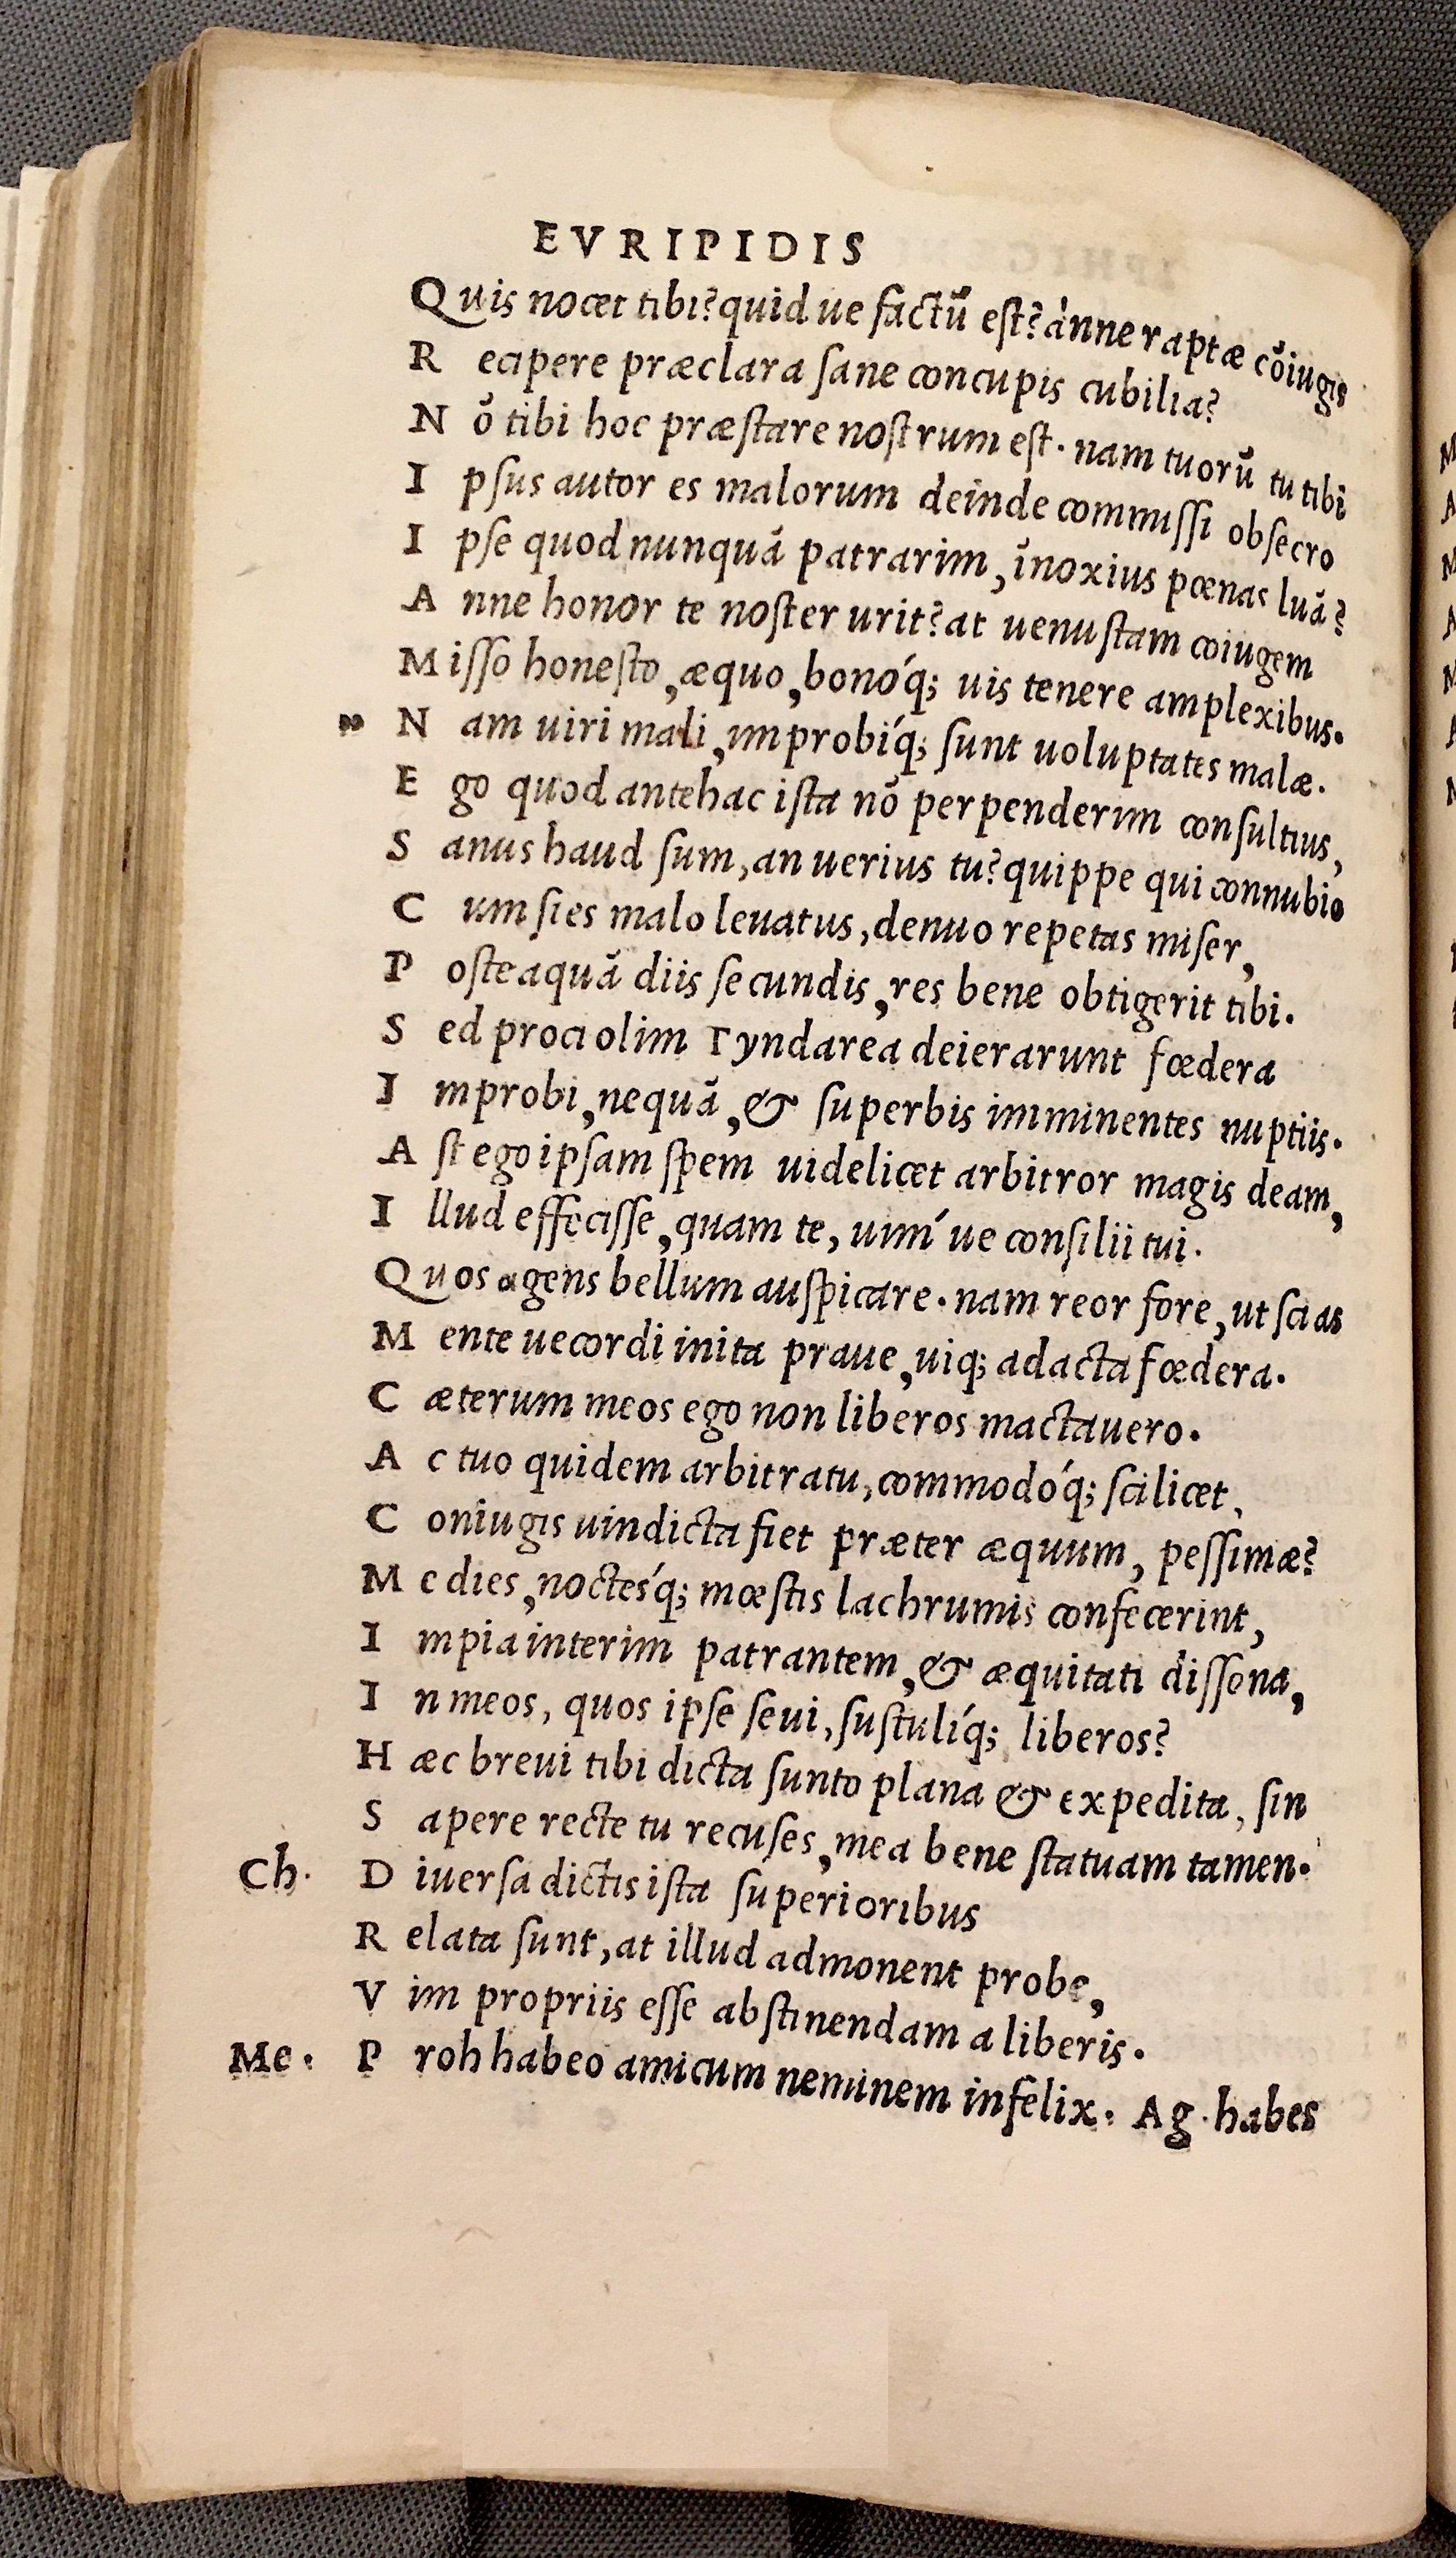 EVRIPIDIS
Quis nocet tibi? quid ue factū est? ànne raptæ cōiugis
Recipere præclara sane concupis cubilia?
Nō tibi hoc præstare nostrum est. nam tuorū tu tibi
Ipsus autor es malorum deinde commissi obsecro
Ipse quod nunquā patrarim, īnoxius pœnas luā?
Anne honor te noster urit? at uenustam coiugem
Misso honesto, æquo, bonóq; uis tenere amplexibus.
" Nam uiri mali, improbíq; sunt uoluptates malæ.
Ego quod antehac ista nō perpenderim consultius,
Sanus haud sum, an uerius tu? quippe qui connubio
Cum sies malo leuatus, denuo repetas miser,
Posteaquā diis secundis, res bene obtigerit tibi.
Sed proci olim Tyndarea deierarunt fœdera
Improbi, nequā, & superbis imminentes nuptiis.
Ast ego ipsam spem uidelicet arbitror magis deam,
Illud effecisse, quam te, uim´ ue consilii tui.
Quos agens bellum auspicare. nam reor fore, ut scias
Mente uecordi inita praue, uiq; adacta fœdera.
Cæterum meos ego non liberos mactauero.
Ac tuo quidem arbitratu, commodóq; scilicet,
Coniugis uindicta fiet præter æquum, pessimæ?
Me dies, noctes´q; mœstis lachrumis confecerint,
Impia interim patrantem, & æquitati dissona,
In meos, quos ipse seui, sustulíq; liberos?
Hæc breui tibi dicta sunto plana & expedita, sin
Sapere recte tu recuses, mea bene statuam tamen.
Ch. Diuersa dictis ista superioribus
Relata sunt, at illud admonent probe,
Vim propriis esse abstinendam a liberis.
Me. Proh habeo amicum neminem infelix. Ag. habes